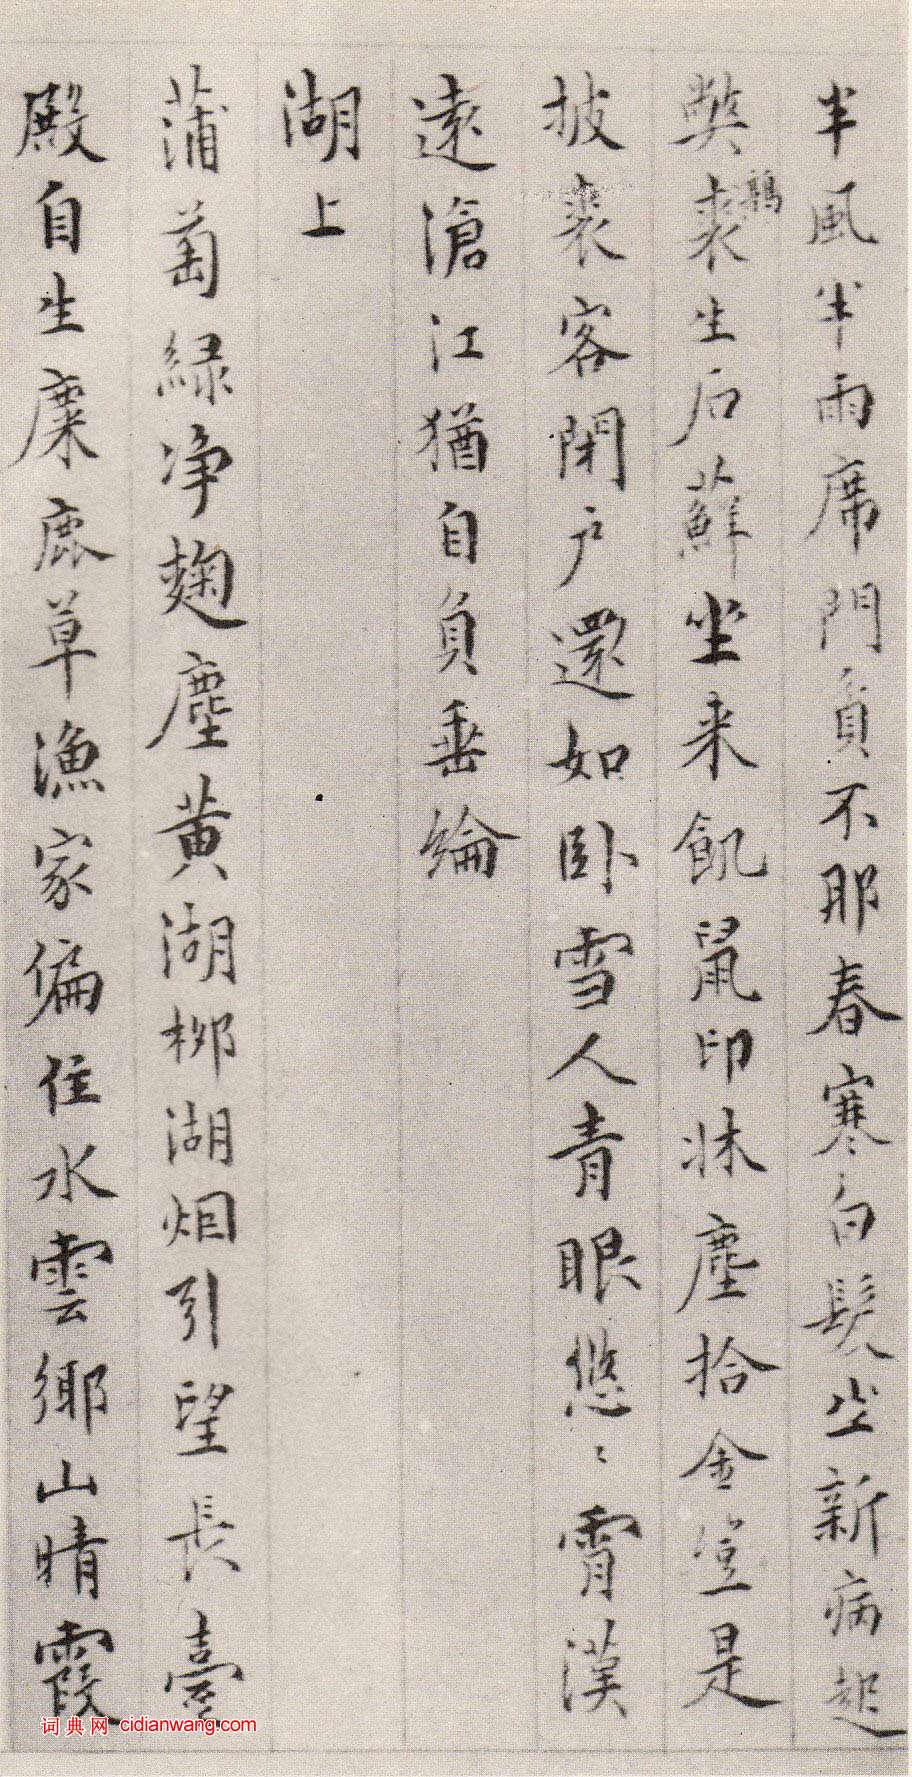 半風半雨席門負不耶春寒白髮坐新病起
弊裘生后蘇坐来飢鼠印牀塵拾金豈是
鶉
披裘客閉户還如卧雪人青眼悠〻霄漢
遠滄江猶自負垂綸
湖上
蒲萄緑净麹塵黄湖柳湖烟引望長臺
殿自生麋鹿草漁家偏住水雲鄉山晴霞
词典网 cidianwang.com